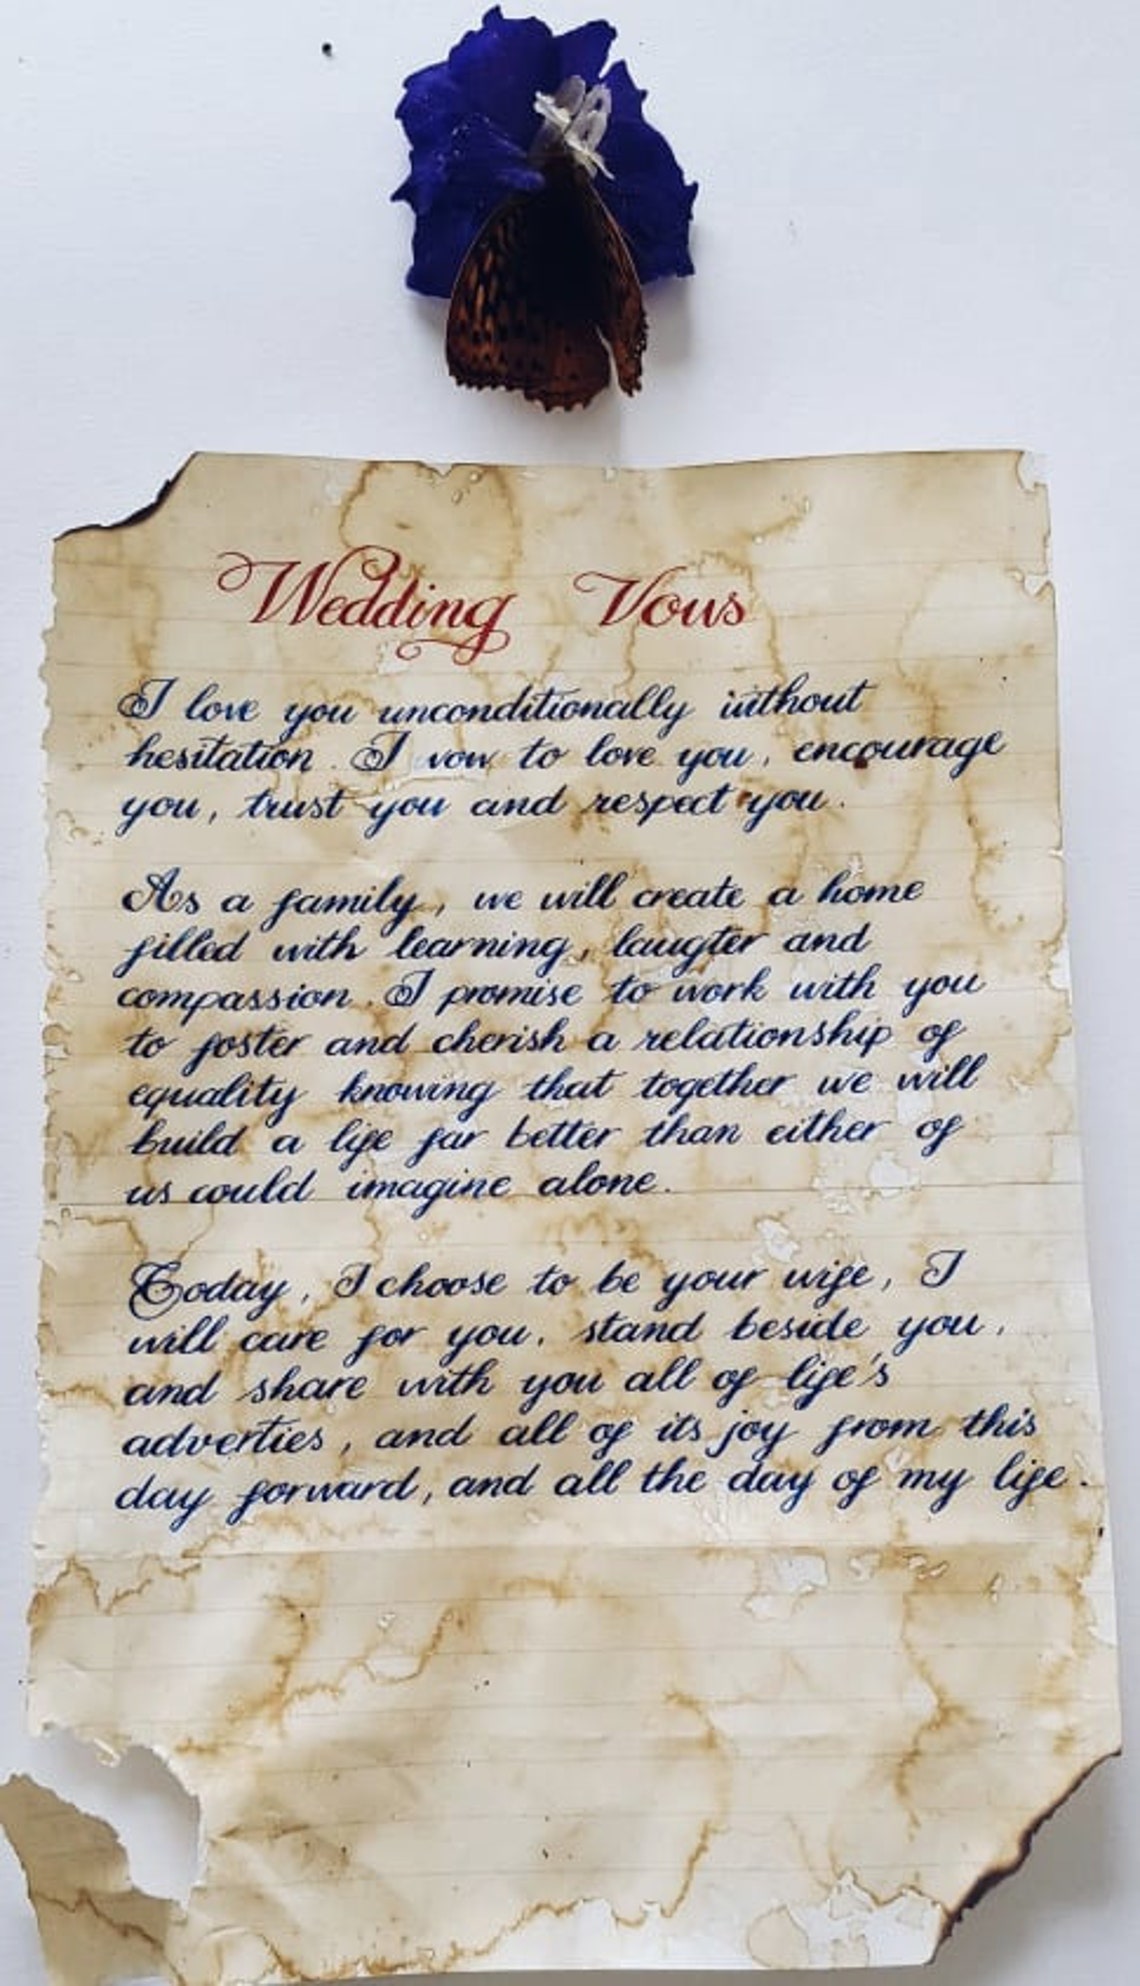 Wedding Vous
I love you unconditionally without
hesitation. I vow to love you, encourage
you, trust you and respect you.
As a family, we will create a home
filled with learning, laugter and
compassion. I promise to work with you
to foster and cherish a relationship of
equality knowing that together we will
build a life far better than either of
us could imagine alone.
Today, I choose to be your wife, I
will care for you, stand beside you,
and share with you all of life's
adverties, and all of its joy from this
day forward, and all the day of my life.